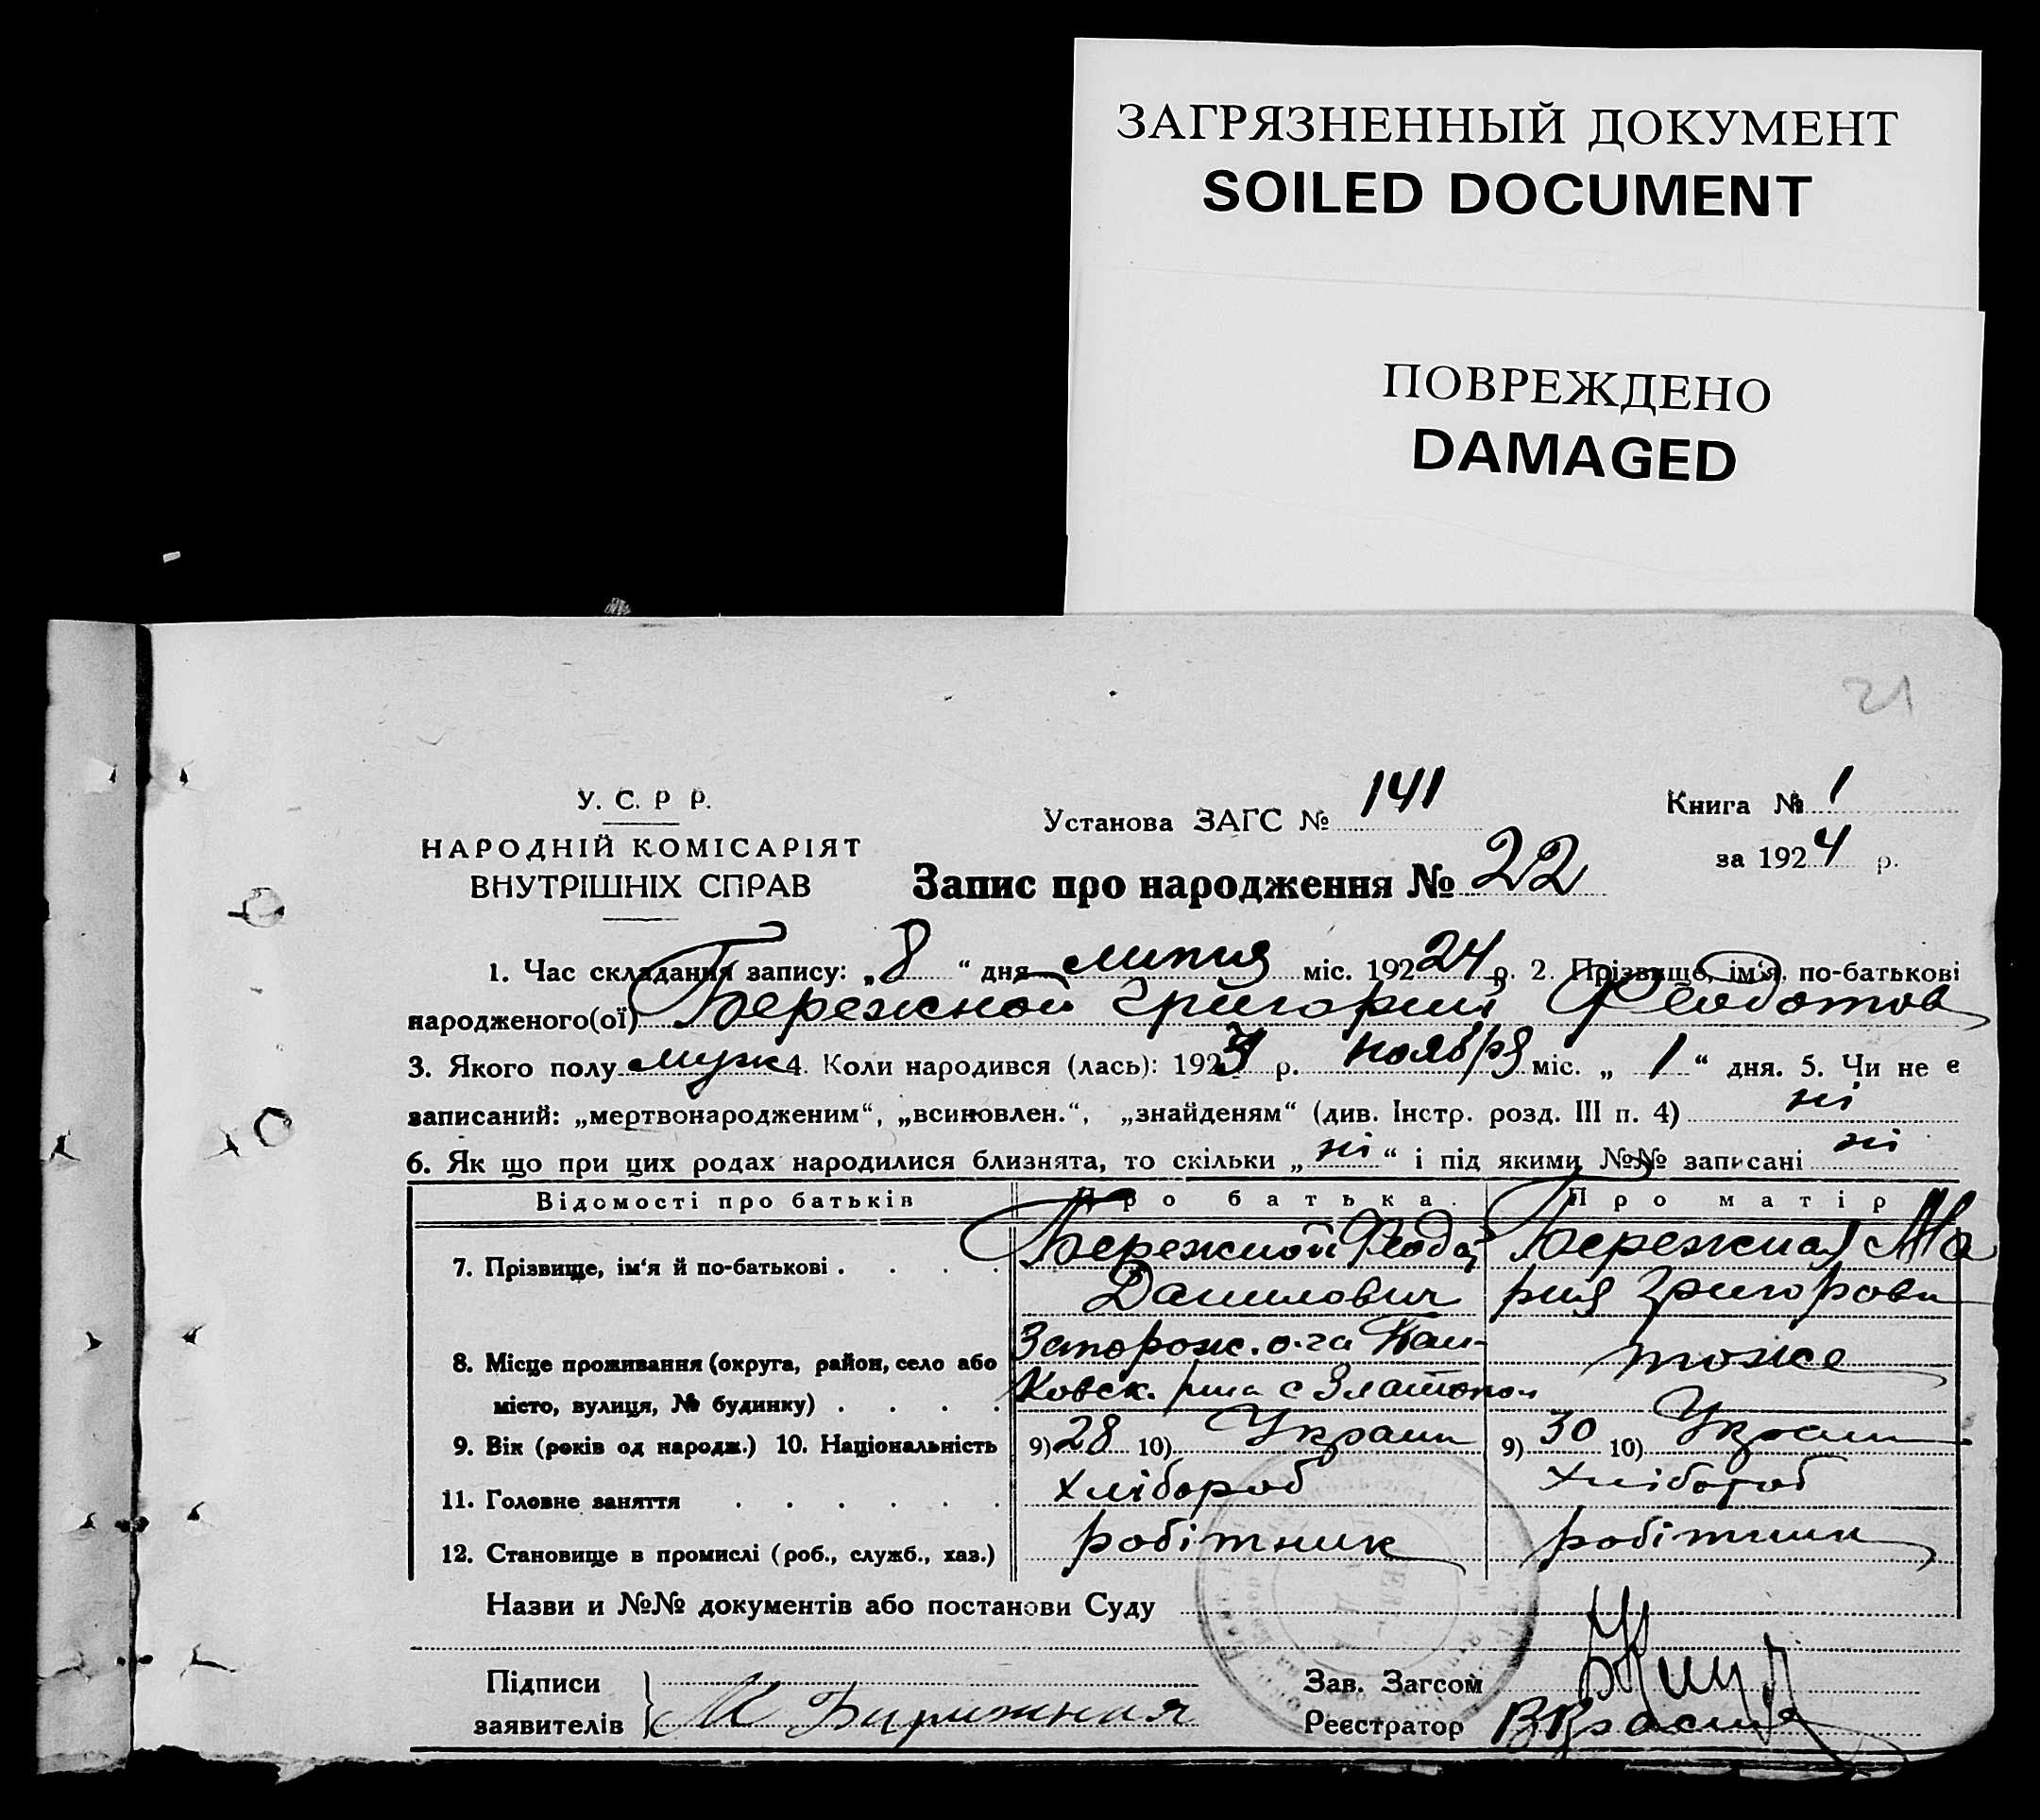 ЗАГРЯЗНЕННЫЙ ДОКУМЕНТ
SOILED DOCUMENT
ПОВРЕЖДЕНО
DAMAGED
21
У. С. Р Р.
НАРОДНІЙ КОМІСАРІЯТ
ВНУТРІШНІХ СПРАВ
Установа ЗАГС № 141
Книга № 1
за 1924 р.
Запис про народження № 22
1. Час складання запису: „8“ дня липня міс. 19224 р. 2. Прізвище, ім'я, по-батькові
народженого(ої) Бережной Григорий Феодотов
3. Якого полу муж 4. Коли народився (лась): 192 р. ноября міс. „1“ дня. 5. Чи не є
записаний: „мертвонародженим“, „всиновлен.“, „знайденям“ (див. Інстр. розд. III п. 4) ні
6. Як що при цих родах народилися близнята, то скільки „ні“ і під якими №№ записані ні
Відомості про батьків Про батька. Про матір
7. Прізвище, ім'я й по-батькові . . . . Бережной Феодот Бережная Ма
Данилович рия Григоровн
8. Місце проживання (округа, район, село або Запорож. о-га Кам- тоже
місто, вулиця, № будинку) . . . . Ковск. р-на с Златопол
9. Вік (років од народж.) 10. Національність 9) 28 10) Украин 9) 30 10) Украин
11. Головне заняття . . . . . . хлібороб хлібороб
12. Становище в промислі (роб., служб., хаз.) робітник робітниця
Назви и №№ документів або постанови Суду
Підписи
заявителів } М Бирижная
Зав. Загсом
Реєстратор